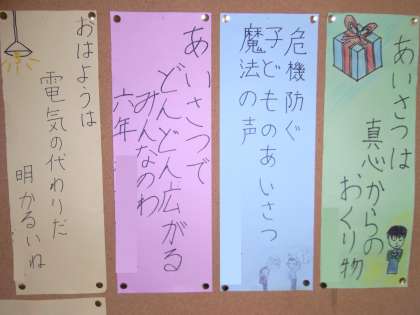 あいさつは
真心からの
おくり物
危機防ぐ
子どものあいさつ
魔法の声
あいさつで
どんどん広がる
みんなのわ
六年
おはようは
電気の代わりだ
明かるいね